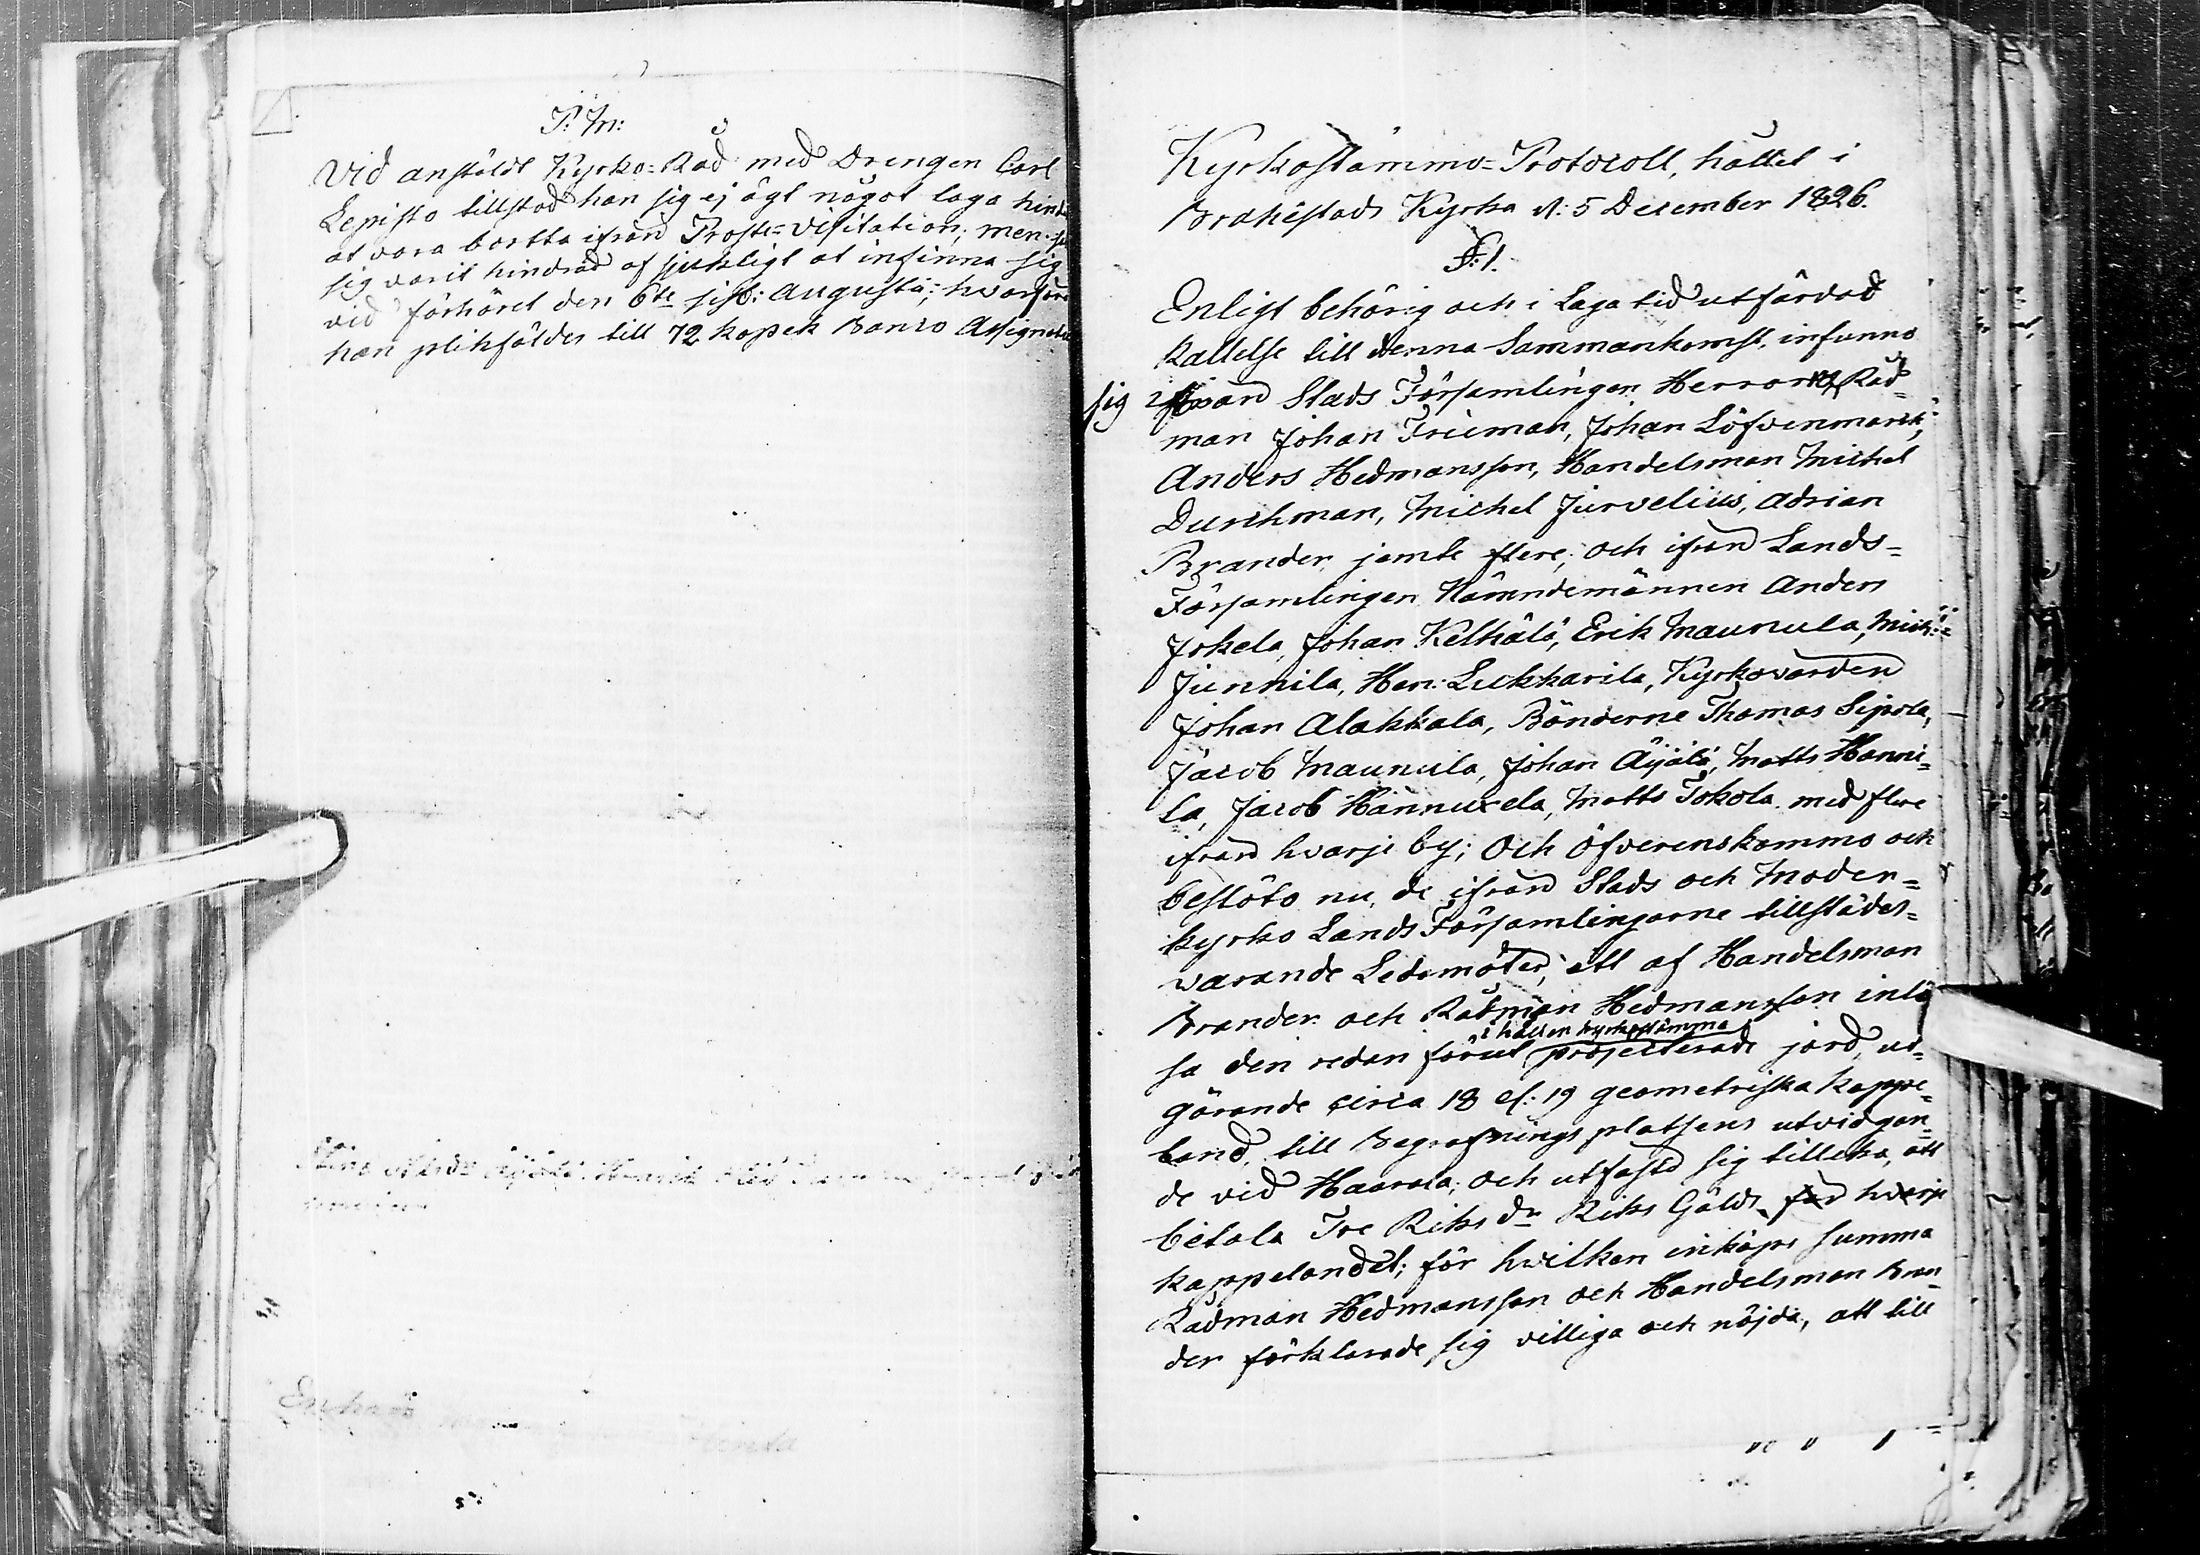 P: M:
Vid anstäldt Kyrko=Råd med Drengen Carl
Lepisto tillstod han sig ej ägt något laga hind
at vara bortta ifrån Proste=Visitation; men
sig varit hindrad af sjukligt at infinna sig
vid förhöret den 6te sist: Augusti; hvarföre
han plihfäldes till 72 kopek Banco Assignatio
Kyrkostämmo=Protocoll, hållit i
Brahestads Kyrka d: 5 December 1826.
§. 1.
Enligt behörig och i Laga tid utfärdad
kallelse till denna Sammankomst, infunno
sig ifrån Stads Församlingen Herrar Råd=
man Johan Frieman, Johan Löfvenmarck,
Anders Hedmansson, Handelsman Michel
Durchman, Michel Jurvelius, Adrian
Brander jemte flere; och ifrån Lands=
Församlingen Nämndemännen Anders
Jokela, Johan Keltälä, Erik Maunula, Mich:
Junnila, Hen: Lukkarila, Kyrkovärden
Johan Alakkala, Bönderne Thomas Sipola,
Jacob Maunula, Johan Äijälä, Matts Hanni=
la, Jacob Hannuxela, Matts Tokola med flere
ifrån hvarje by; Och öfverenskommo och
beslöto nu, de ifrån Stads och Moder=
kyrko Lands Församlingarne tillstädes=
varande Ledamöter, att af Handelsman
Brander och Rådman Hedmansson inlö
sa den redan förut i hållen kyrkostämma projecterade jord, ut=
görande circa 18 el: 19 geometriska kappe=
land, till Begrafnings platsens utvidgan=
de vid Haarala; och utfäste sig tillika, att
betala Tre Riksdr Riks Gälds för hvarje
kappelandet; för hvilken inköps summa
Rådman Hedmansson och Handelsman Bran=
der förklarade sig villiga och nöjda, att till